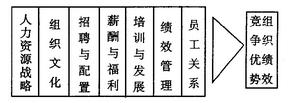 人力资源战略
组织文化
招聘与配置
薪酬与福利
培训与发展
绩效管理
员工关系
竞争优势
组织绩效